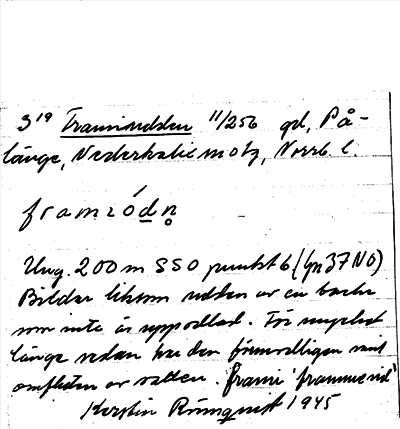 3¹⁹ Framiudden 11/256 gd, På-
länge, Nederkalix motg, Norrb. l.
framıódn̥
Ung. 200 m SSO punkt 6 (lyr 37 NO)
Bildar liksom udden av en backe
som inte är uppodlad. För mycket
länge sedan har den förmodligen varit
omfluten av vatten. frami 'framme vid'
Kerstin Rönnqvist 1945